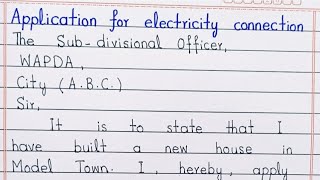 Application for electricity connection
The Sub-divisional Officer,
WAPDA,
City (A.B.C.)
Sir,
It is to state that I
have built a new house in
Model Town. I, hereby, apply